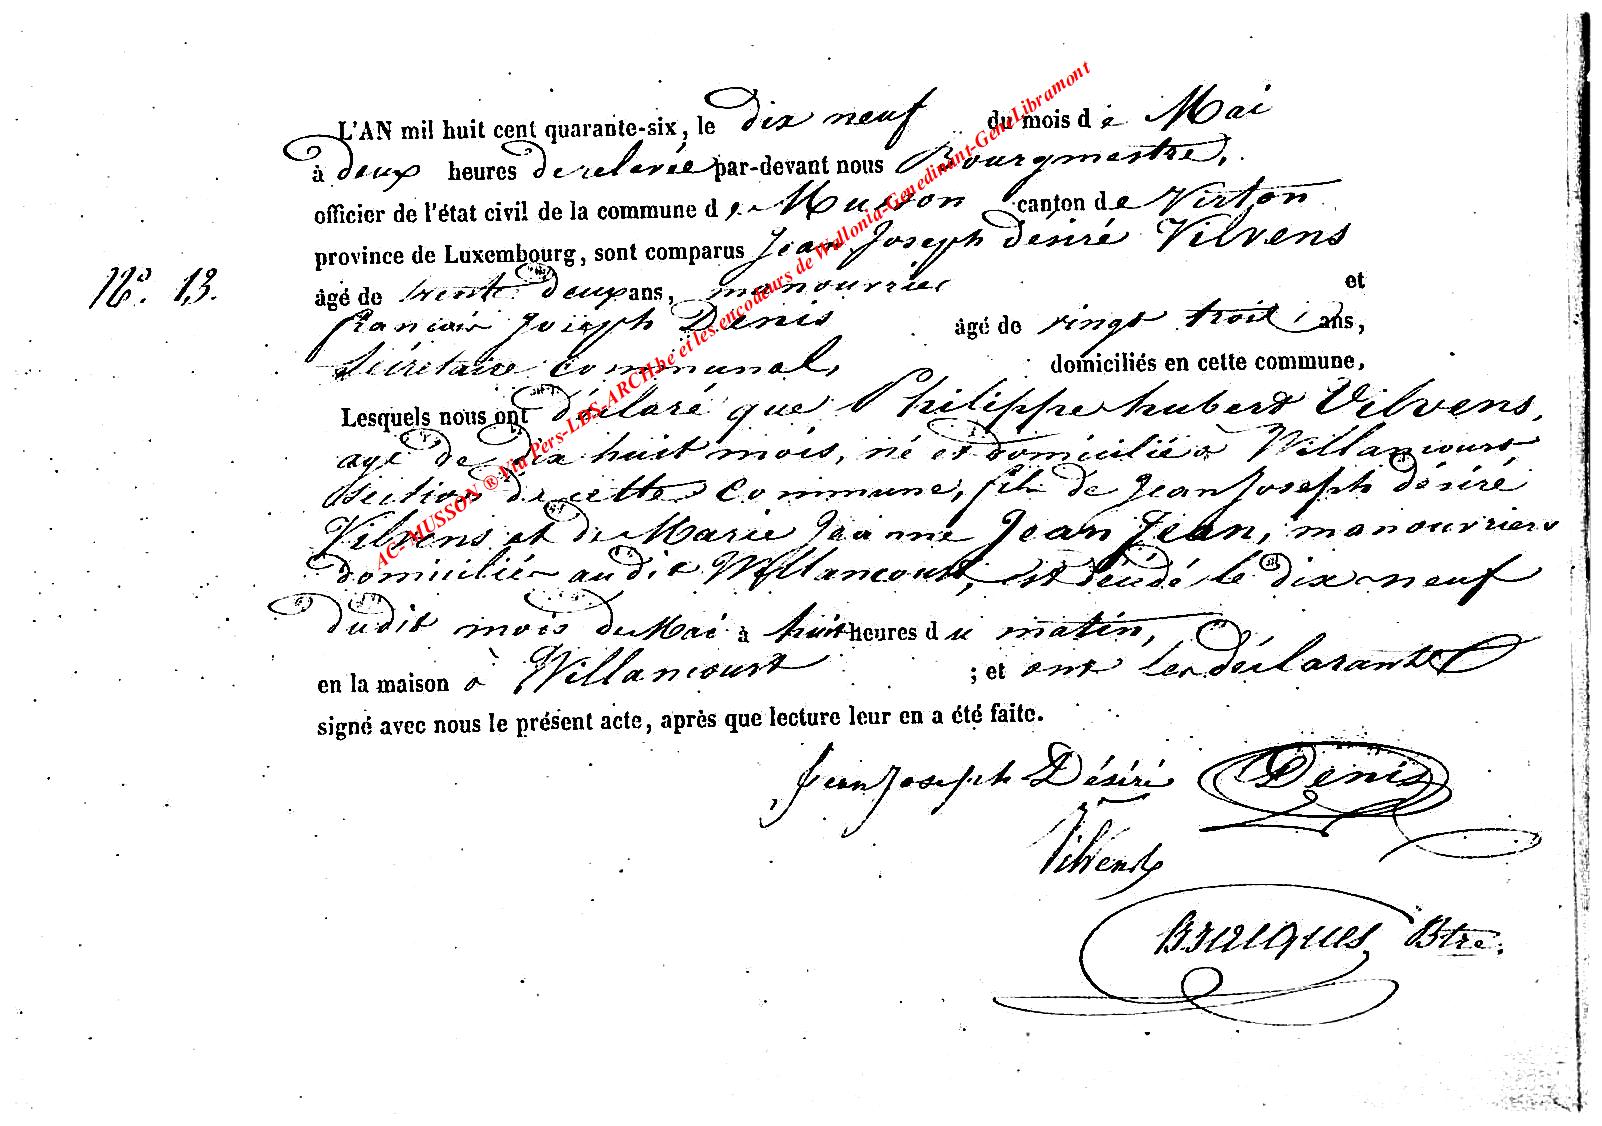 L'AN mil huit cent quarante-six, le dix neuf du mois de Mai
à deux heures de relevée par-devant nous Bourgmestre,
officier de l'état civil de la commune de Musson canton de Virton
province de Luxembourg, sont comparus Jean Joseph désiré Vilvens
N.º 13.
âgé de trente deux ans, manouvrier et
francois Joseph Denis âgé de vingt trois ans,
Sécretaire communal, domiciliés en cette commune,
Lesquels nous ont déclaré que Philippe hubert Vilvens,
agé de dix huit mois, né et domicilié à Willancourt
section de cette commune, fils de Jean Joseph désiré
Vilvens et de Marie Jeanne Jean Jean, manouvriers
domiciliés audit Willancourt, est décédé le dix neuf
dudit mois de Mai à huit heures du matin,
en la maison à Willancourt ; et ont les déclarants
signé avec nous le présent acte, après que lecture leur en a été faite.
Jean Joseph Désiré Denis
Vilvens
Btre.
AC- MUSSON ® Via Pers-LDS-ARCH.be et les encodeurs de Wallonia-Genedinant-GeneLibramont